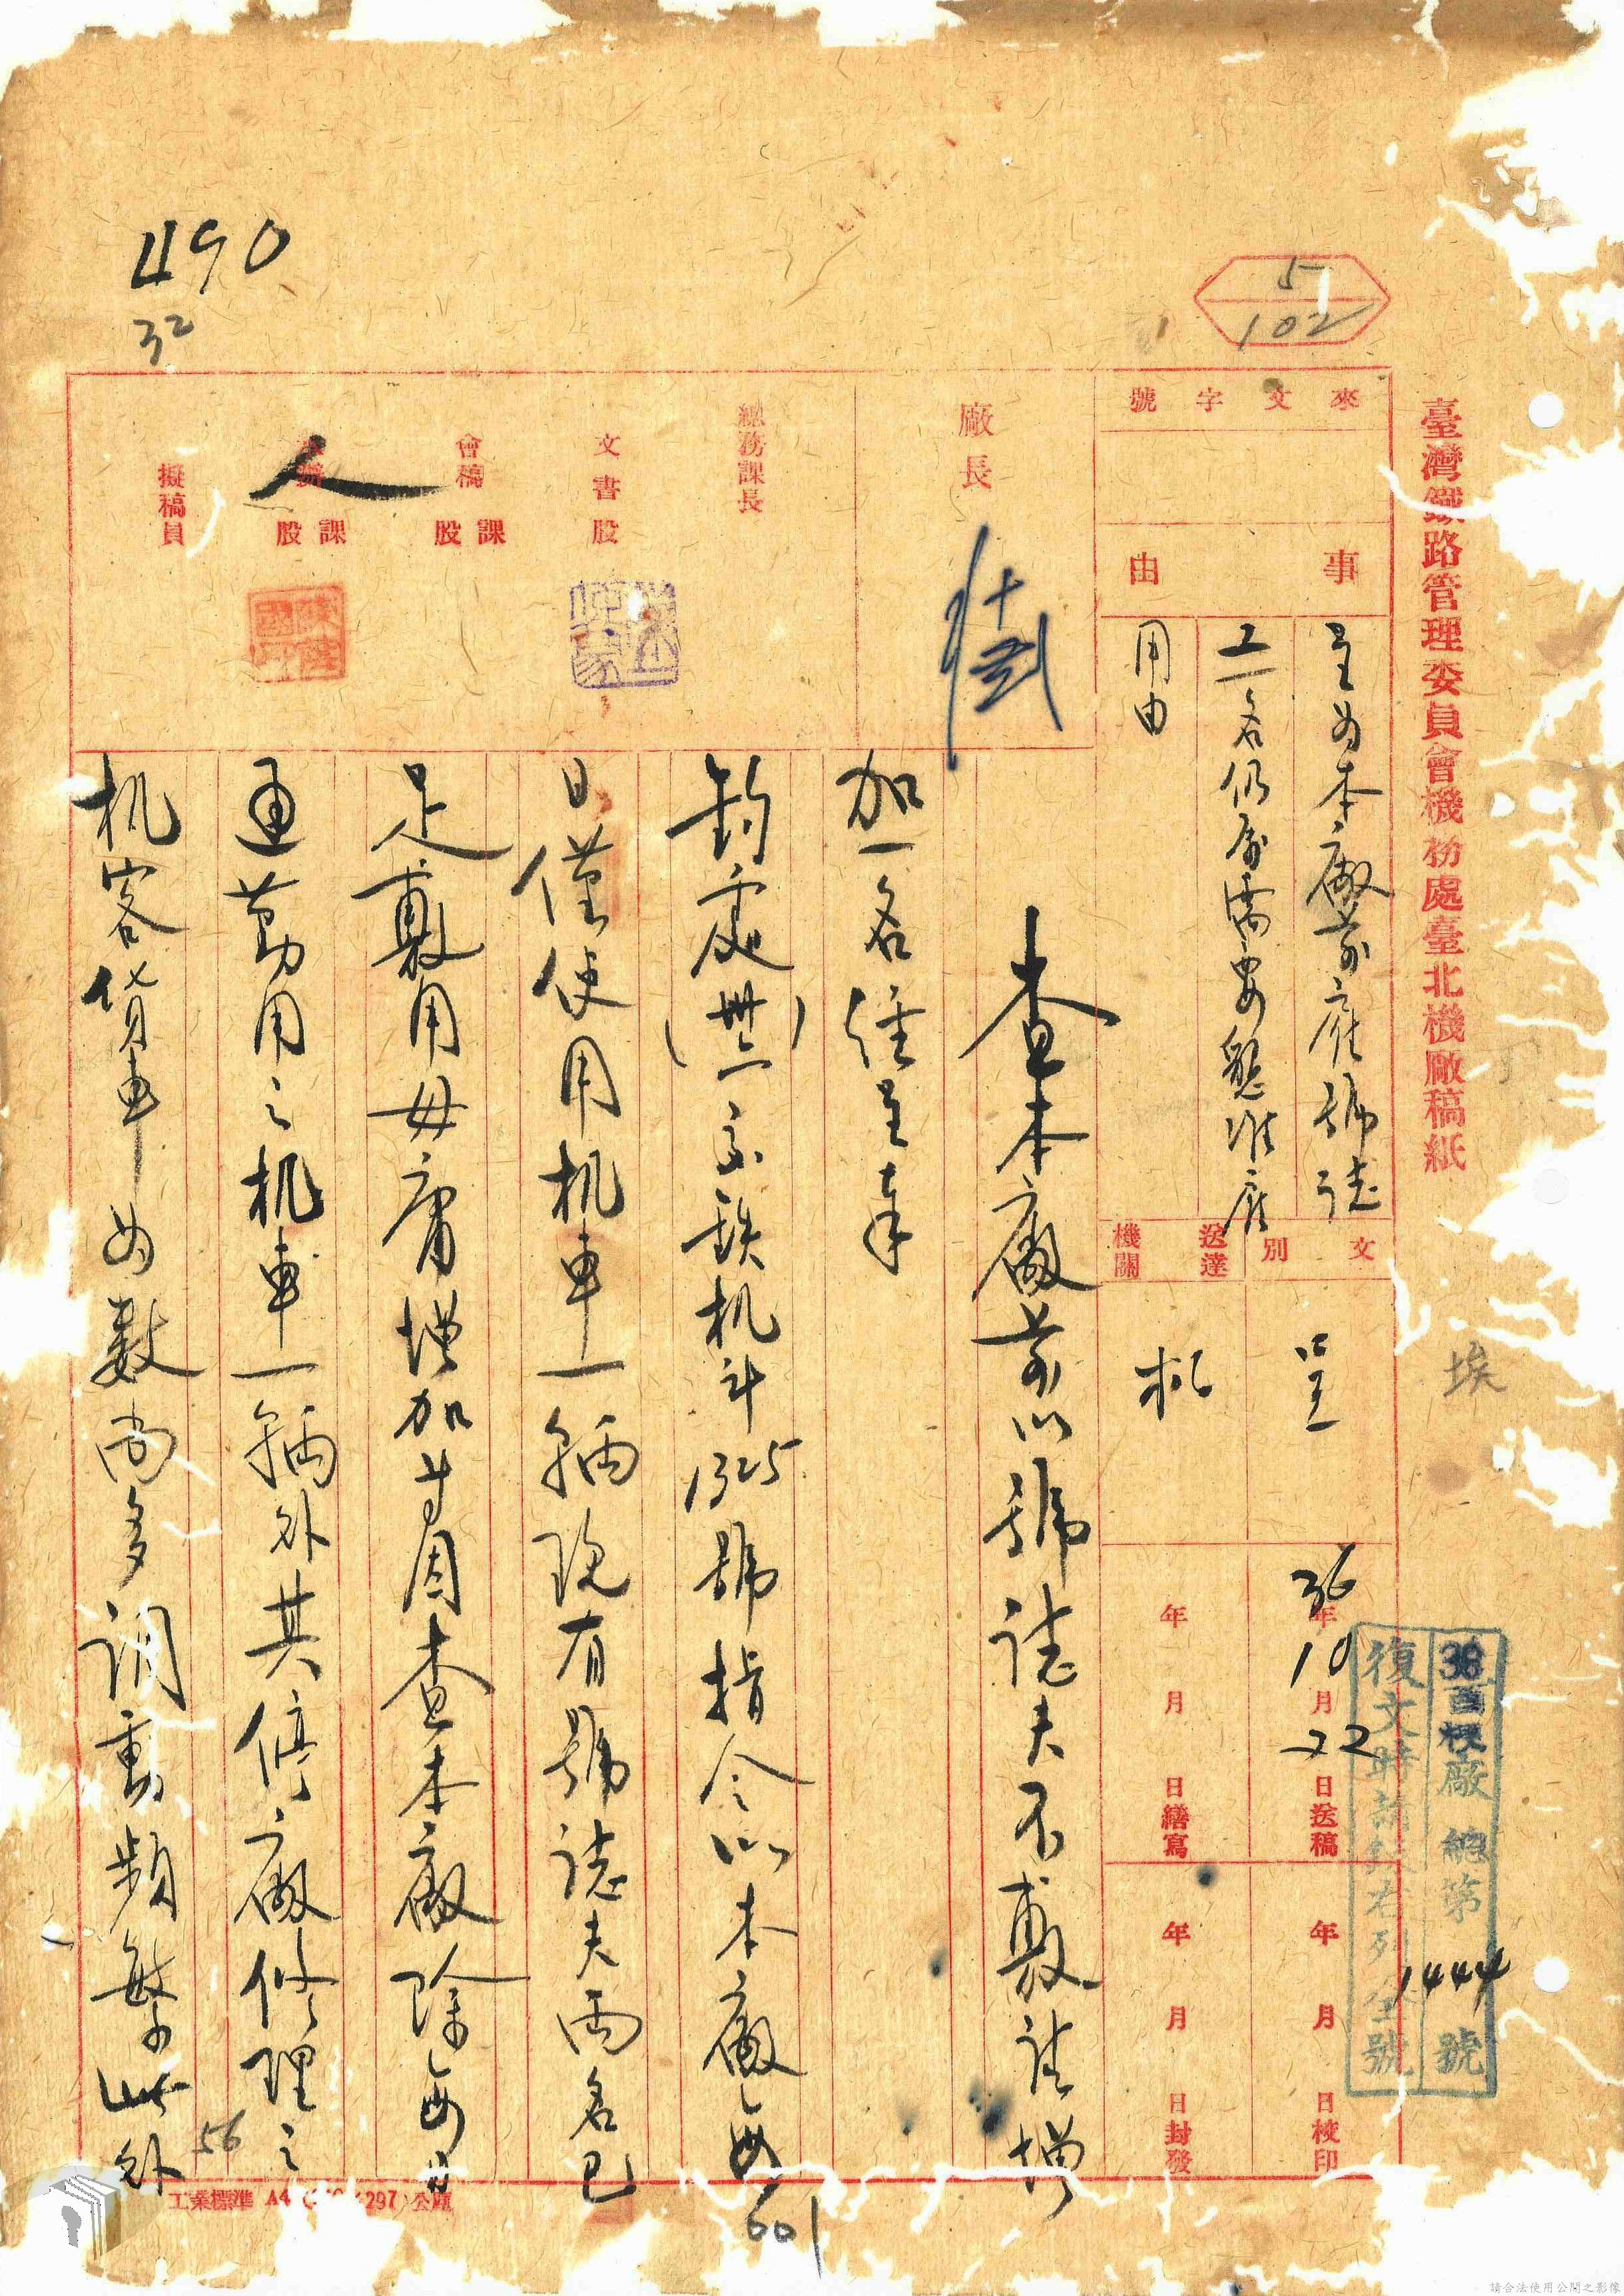 490
32
5
102
臺灣鐵路管理委員會機務處臺北機廠稿紙
來文字號
事由
呈為本廠前雇號誌
工一名仍屬需要懇准雇
用由
文別
呈
送達機關
机
36年10月22日送稿
年 月 日繕寫
年 月 日校印
年 月 日封發
廠長
總務課長
文書股
會稿 課股
人
課股
擬稿員
埃
36酉梗廠總第1444號
復文時請敘右列全號
查本廠前以號誌夫不敷請增
加一名經呈奉
鈞處(卅六)家鉄机斗1325號指令以本廠每
日僅使用机車一輛現有號誌夫両名已
足敷用毋庸增加等因查本廠除每日
通勤用之机車一輛外其停廠修理之
机客貨車為數尚多調動頻繁此外
56
601
工業標準 A4 (297)公厘
請合法使用公開之影像